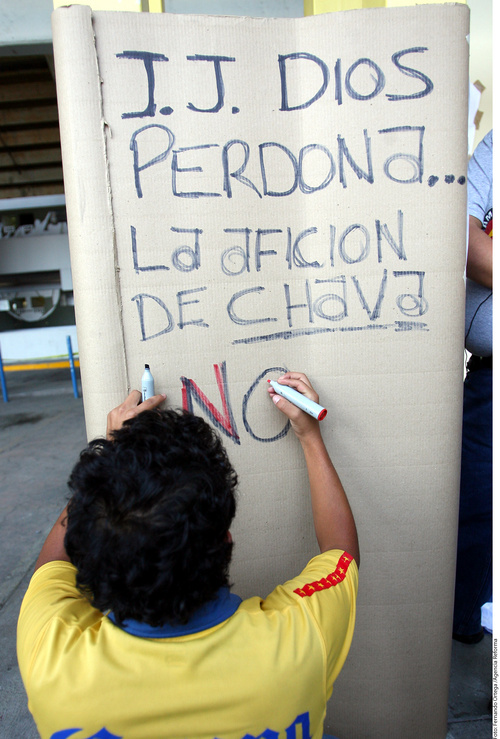 I.J. DIOS
PERDONa...
La aFICION
DE CHaVa
NO
Foto: Fernando Ortega /Agencia Reforma